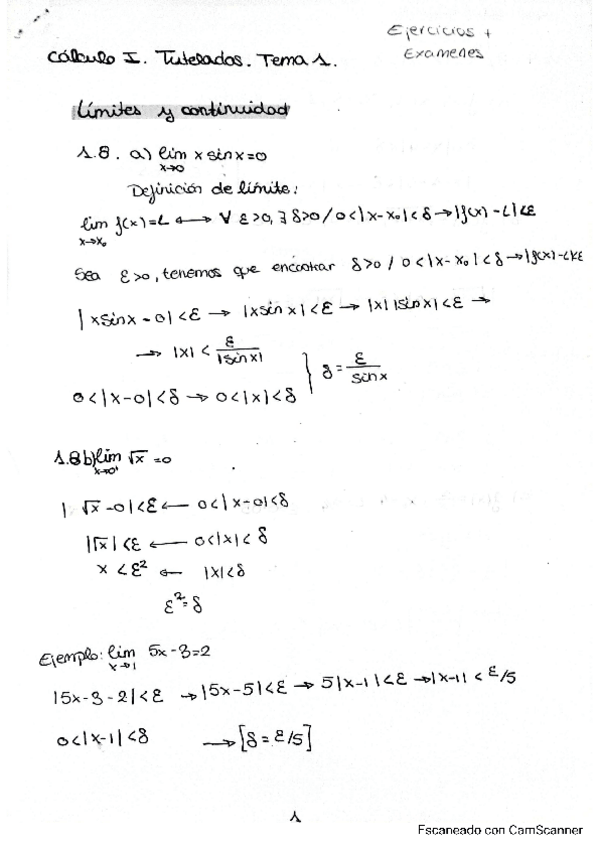 Ejercicios +
Examenes
Cálculo I. Tutelados. Tema 1.
Límites y continuidad
1.8. a) lim x sinx = 0
x→0
Definición de límite:
lim f(x) = L ⟷ ∀ ε>0, ∃ δ>0 / 0<|x-x₀|<δ → |f(x)-L|<ε
x→x₀
Sea ε>0, tenemos que encontrar δ>0 / 0<|x-x₀|<δ → |f(x)-L|<ε
|x sinx - 0|<ε → |x sin x|<ε → |x| |sinx|<ε →
→ |x| < ε/|sinx| } δ = ε/sinx
0<|x-0|<δ → 0<|x|<δ
1.8 b) lim √x = 0
x→0⁺
|√x - 0|<ε ← 0<|x-0|<δ
|√x|<ε ← 0<|x|<δ
x < ε² ← |x|<δ
ε² = δ
Ejemplo: lim 5x-3=2
x→1
|5x-3-2|<ε → |5x-5|<ε → 5|x-1|<ε → |x-1| < ε/5
0<|x-1|<δ → [δ = ε/5]
1
Escaneado con CamScanner